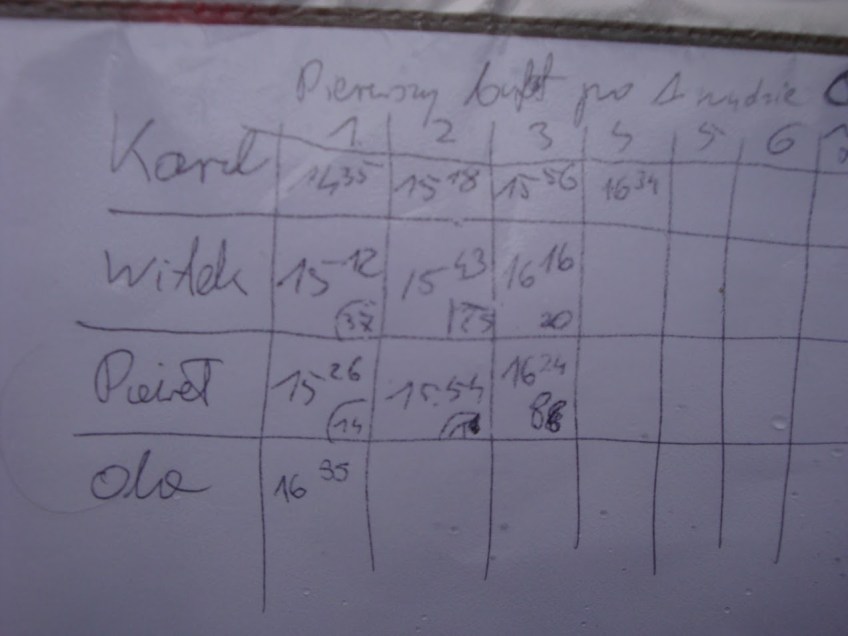 Pierwszy bufet po 1 rundzie
1. 2 3 4 5 6
Karol 14 35 15 18 15 56 16 34
Witek 15 12 15 43 16 16
37 25 20
Paweł 15 26 15.54 16 24
14 11 8
Ola 16 35